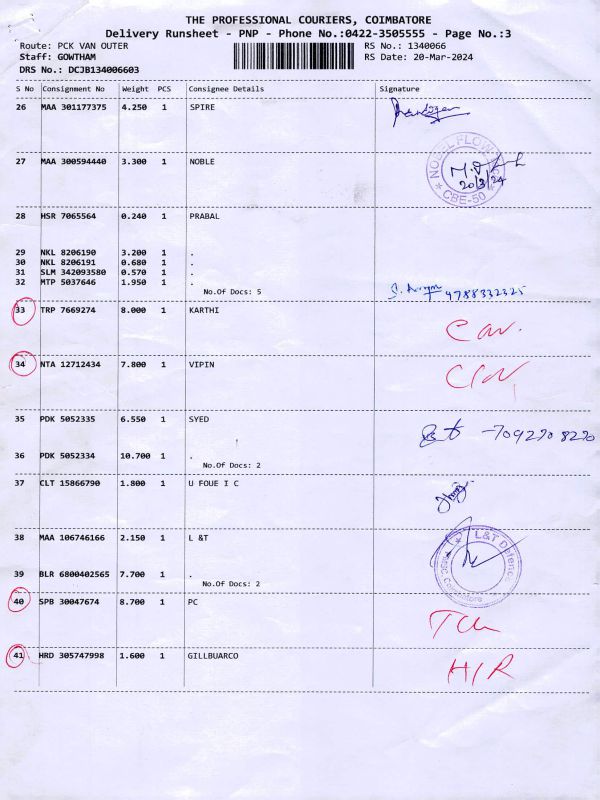 THE PROFESSIONAL COURIERS, COIMBATORE
Delivery Runsheet - PNP - Phone No.:0422-3505555 - Page No.:3
Route: PCK VAN OUTER RS No.: 1340066
Staff: GOWTHAM RS Date: 20-Mar-2024
DRS No.: DCJB134006603
S No Consignment No Weight PCS Consignee Details Signature
26 MAA 301177375 4.250 1 SPIRE
27 MAA 300594440 3.300 1 NOBLE
20/3/24
CBE-50
28 HSR 7065564 0.240 1 PRABAL
29 NKL 8206190 3.200 1 .
30 NKL 8206191 0.680 1 .
31 SLM 342093580 0.570 1 .
32 MTP 5037646 1.950 1 .
No.Of Docs: 5 9788332325
33 TRP 7669274 8.000 1 KARTHI
34 NTA 12712434 7.800 1 VIPIN
35 PDK 5052335 6.550 1 SYED
-7092708270
36 PDK 5052334 10.700 1 .
No.Of Docs: 2
37 CLT 15866790 1.800 1 U FOUE I C
38 MAA 106746166 2.150 1 L &T
L&T Defence
Coimbatore
39 BLR 6800402565 7.700 1 .
No.Of Docs: 2
40 SPB 30047674 8.700 1 PC
41 HRD 305747998 1.600 1 GILLBUARCO
H/R